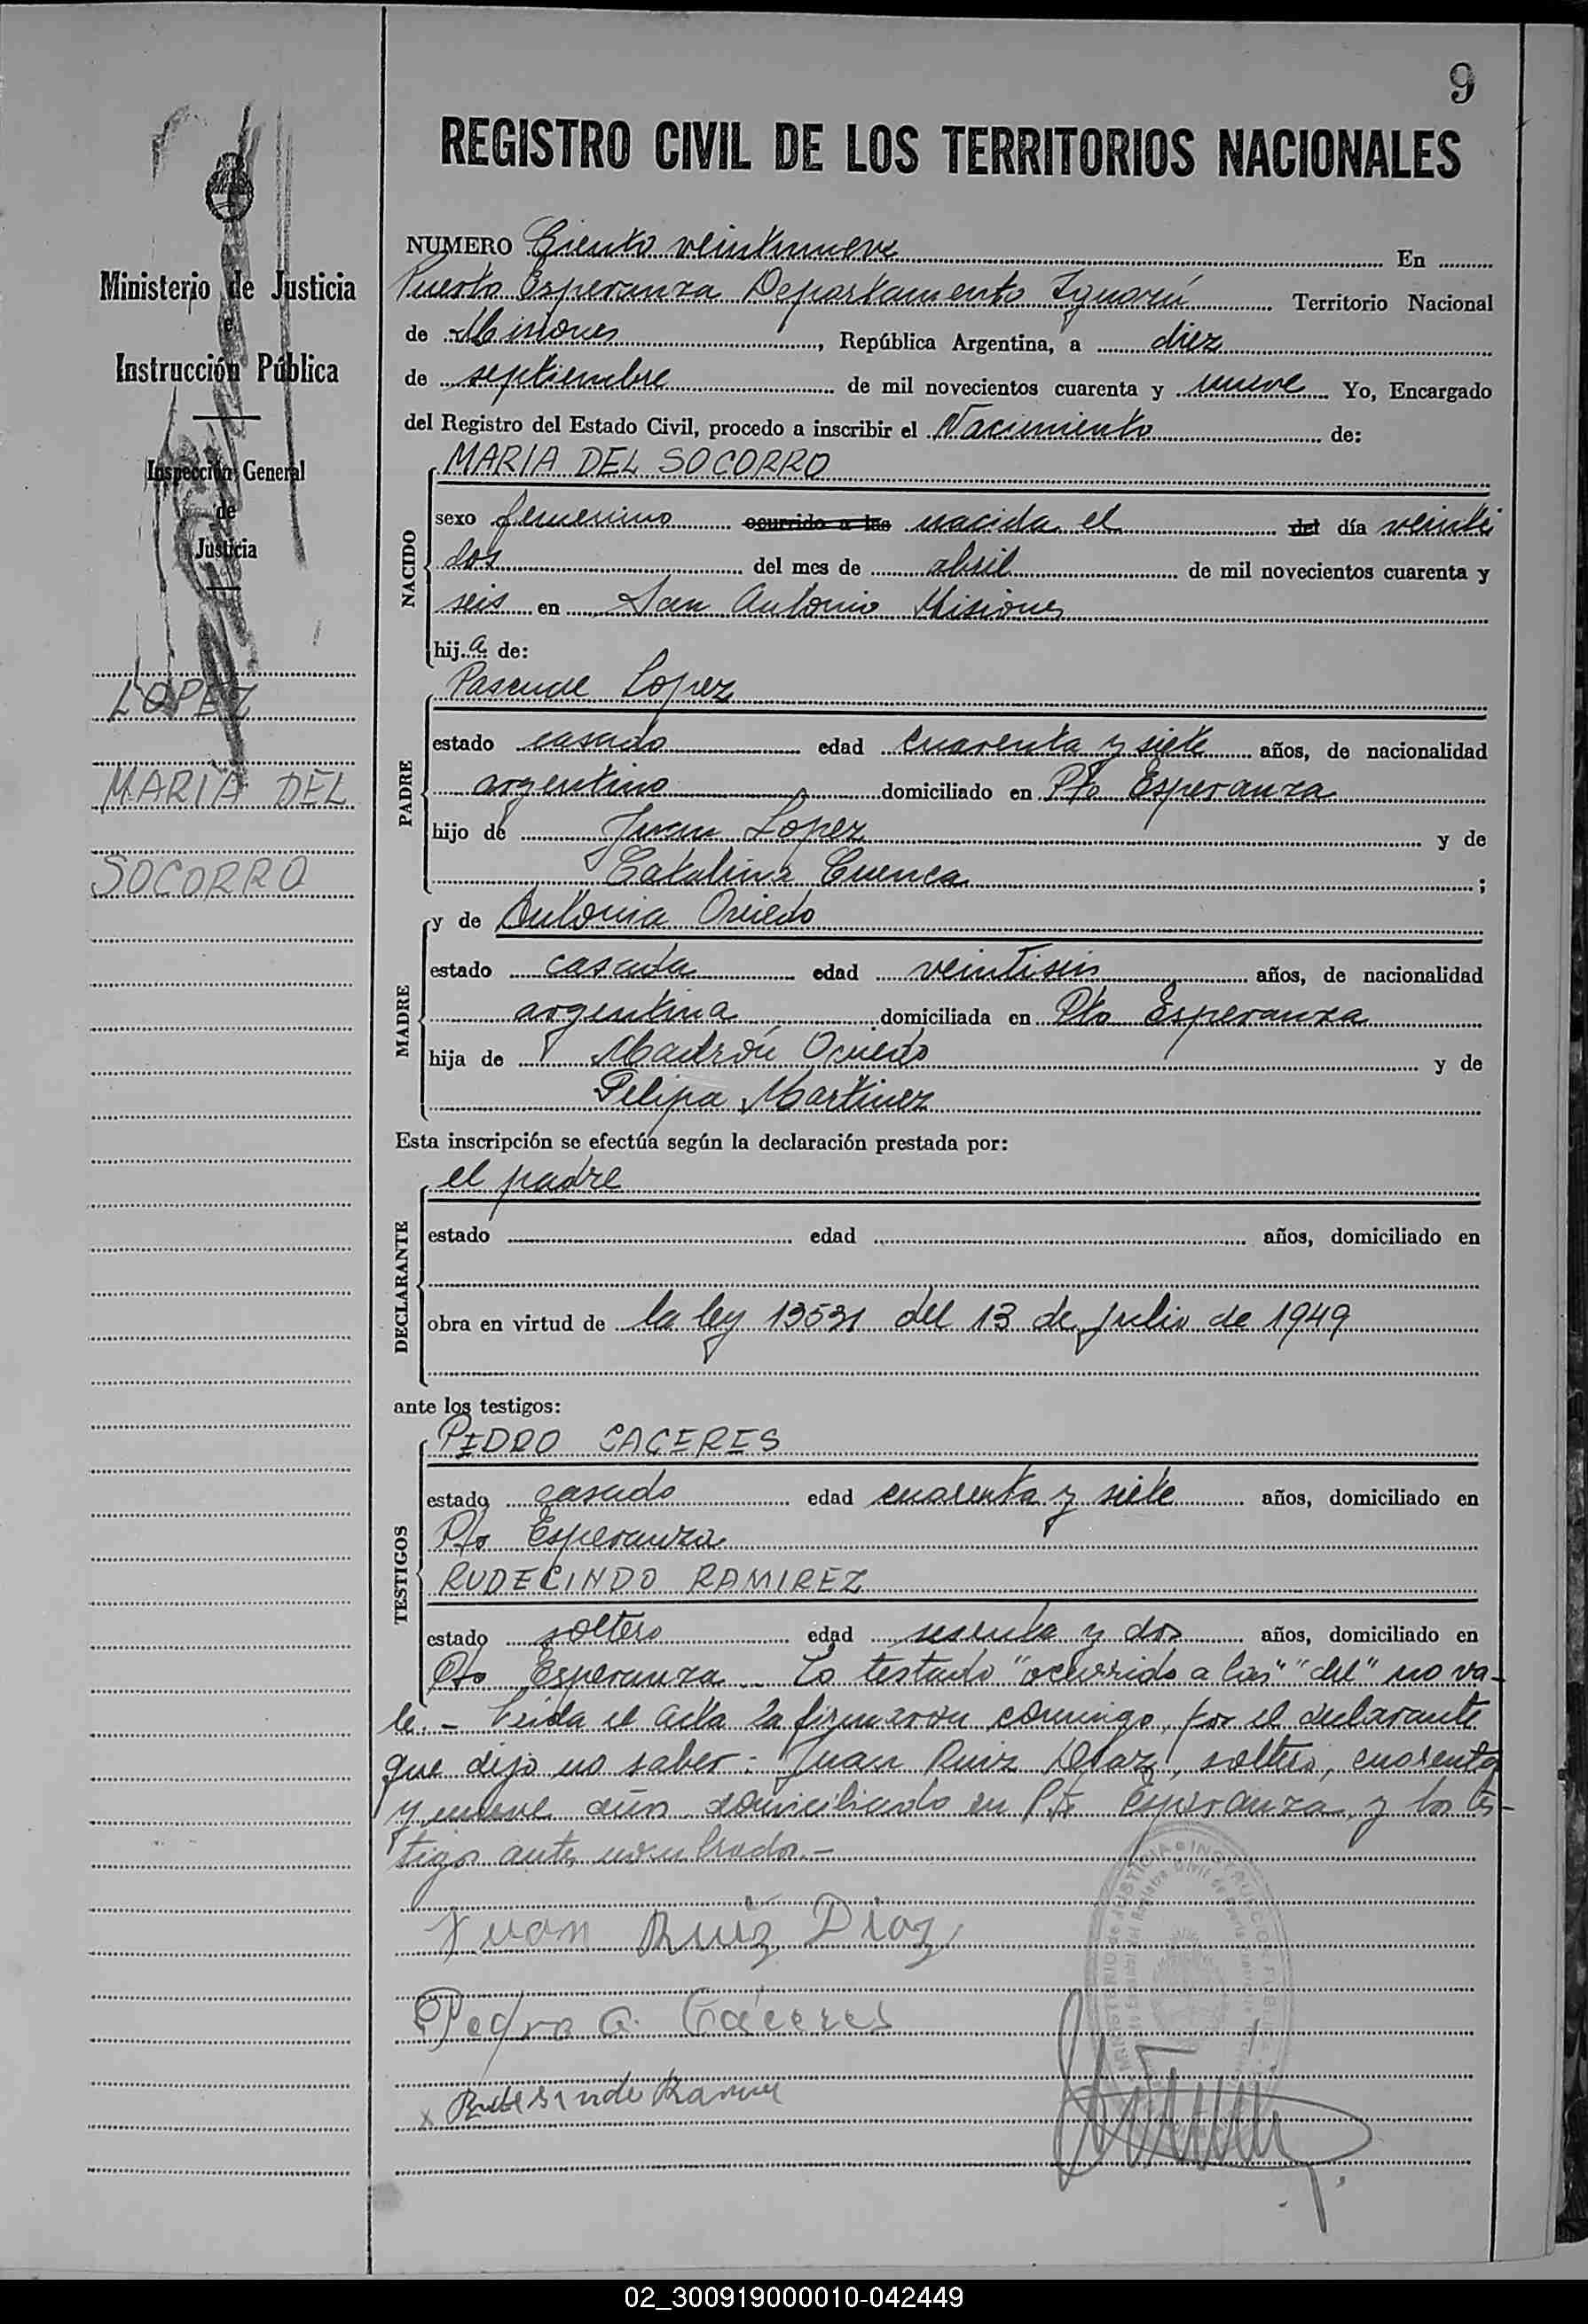 9
REGISTRO CIVIL DE LOS TERRITORIOS NACIONALES
Ministerio de Justicia
e
Instrucción Pública
Inspección General
de
Justicia
LOPEZ
MARIA DEL
SOCORRO
NUMERO Ciento veintinueve En
Puerto Esperanza Departamento Iguazú Territorio Nacional
de Misiones, República Argentina, a diez
de septiembre de mil novecientos cuarenta y nueve Yo, Encargado
del Registro del Estado Civil, procedo a inscribir el Nacimiento de:
NACIDO
MARIA DEL SOCORRO
sexo femenino ocurrido a las nacida el del día veinti
dos del mes de abril de mil novecientos cuarenta y
seis en San Antonio Misiones
hija de:
PADRE
Pascual Lopez
estado casado edad cuarenta y siete años, de nacionalidad
argentino domiciliado en Pto Esperanza
hijo de Juan López y de
Catalina Cuenca ;
MADRE
y de Antonia Oviedo
estado casada edad veintiseis años, de nacionalidad
argentina domiciliada en Pto Esperanza
hija de Oviedo y de
Felipa Martinez
Esta inscripción se efectúa según la declaración prestada por:
DECLARANTE
el padre
estado edad años, domiciliado en
obra en virtud de la ley 13531 del 13 de julio de 1949
ante los testigos:
TESTIGOS
PEDRO CACERES
estado casado edad cuarenta y siete años, domiciliado en
Pto Esperanza
RUDECINDO RAMIREZ
estado soltero edad sesenta y dos años, domiciliado en
Pto Esperanza. Lo testado "ocurrido a las" "del" no va-
le.- Leida el acta la firmaron conmigo, por el declarante
que dijo no saber: Juan Ruiz Diaz, soltero, cuarenta
y nueve años domiciliado en Pto Esperanza, y los tes-
tigos antes nombrados.-
Juan Ruiz Diaz
Pedro A. Cáceres
x Rudesindo Ramire
02_300919000010-042449